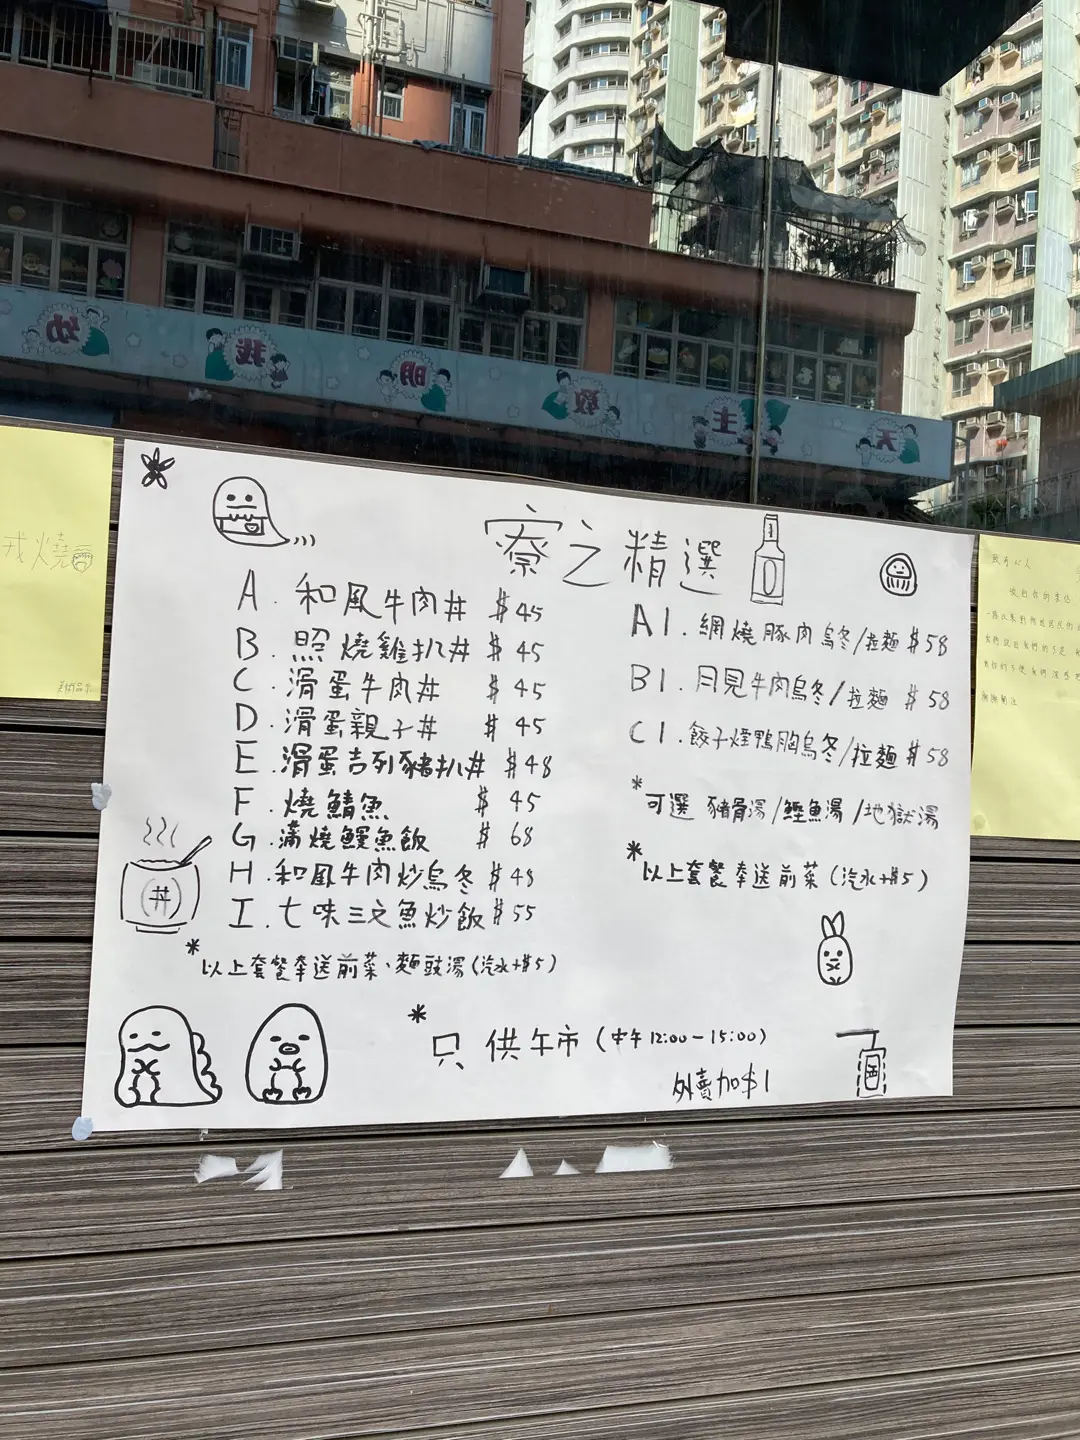 幼 我 明 敬 主 天
戎燒
寮之精選
A. 和風牛肉丼 $45
B. 照燒雞扒丼 $45
C. 滑蛋牛肉丼 $45
D. 滑蛋親子丼 $45
E. 滑蛋吉列豬扒丼 $48
F. 燒鯖魚 $45
G. 蒲燒鰻魚飯 $68
H. 和風牛肉炒烏冬 $48
I. 七味三文魚炒飯 $55
*以上套餐奉送前菜、麵豉湯(汽水+$5)
丼
A1. 網燒豚肉烏冬/拉麵 $58
B1. 月見牛肉烏冬/拉麵 $58
C1. 餃子煙鴨胸烏冬/拉麵 $58
*可選 豬骨湯/鰹魚湯/地獄湯
*以上套餐奉送前菜(汽水+$5)
*只供午市(中午12:00-15:00)
外賣加$1